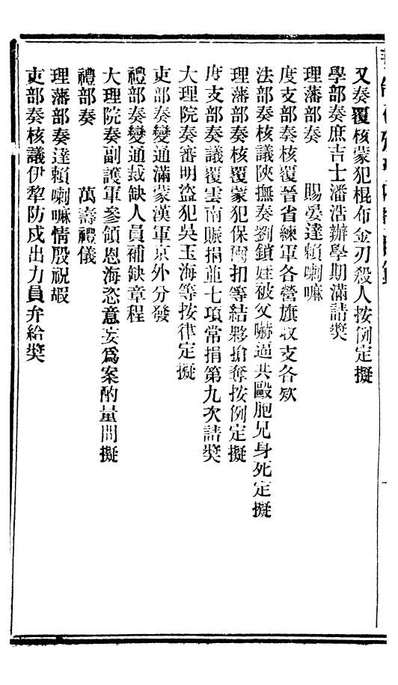 又奏覆核蒙犯棍布金刃殺人按例定擬
學部奏庶吉士潘浩辦學期滿請奬
理藩部奏　賜宴達賴喇嘛
度支部奏核覆晉省練軍各營旗收支各欵
法部奏核議陝撫奏劉鎖娃被父嚇逼共毆胞兄身死定擬
理藩部奏核覆蒙犯保扣等結夥搶奪按例定擬
度支部奏議覆雲南賑捐並七項常捐第九次請奬
大理院奏審明盜犯吳玉海等按律定擬
吏部奏變通滿蒙漢軍京外分發
禮部奏變通裁缺人員補缺章程
大理院奏副護軍參領恩海恣意妄爲案酌量問擬
禮部奏　萬壽禮儀
理藩部奏達賴喇嘛情殷祝嘏
吏部奏核議伊犂防戍出力員弁給奬